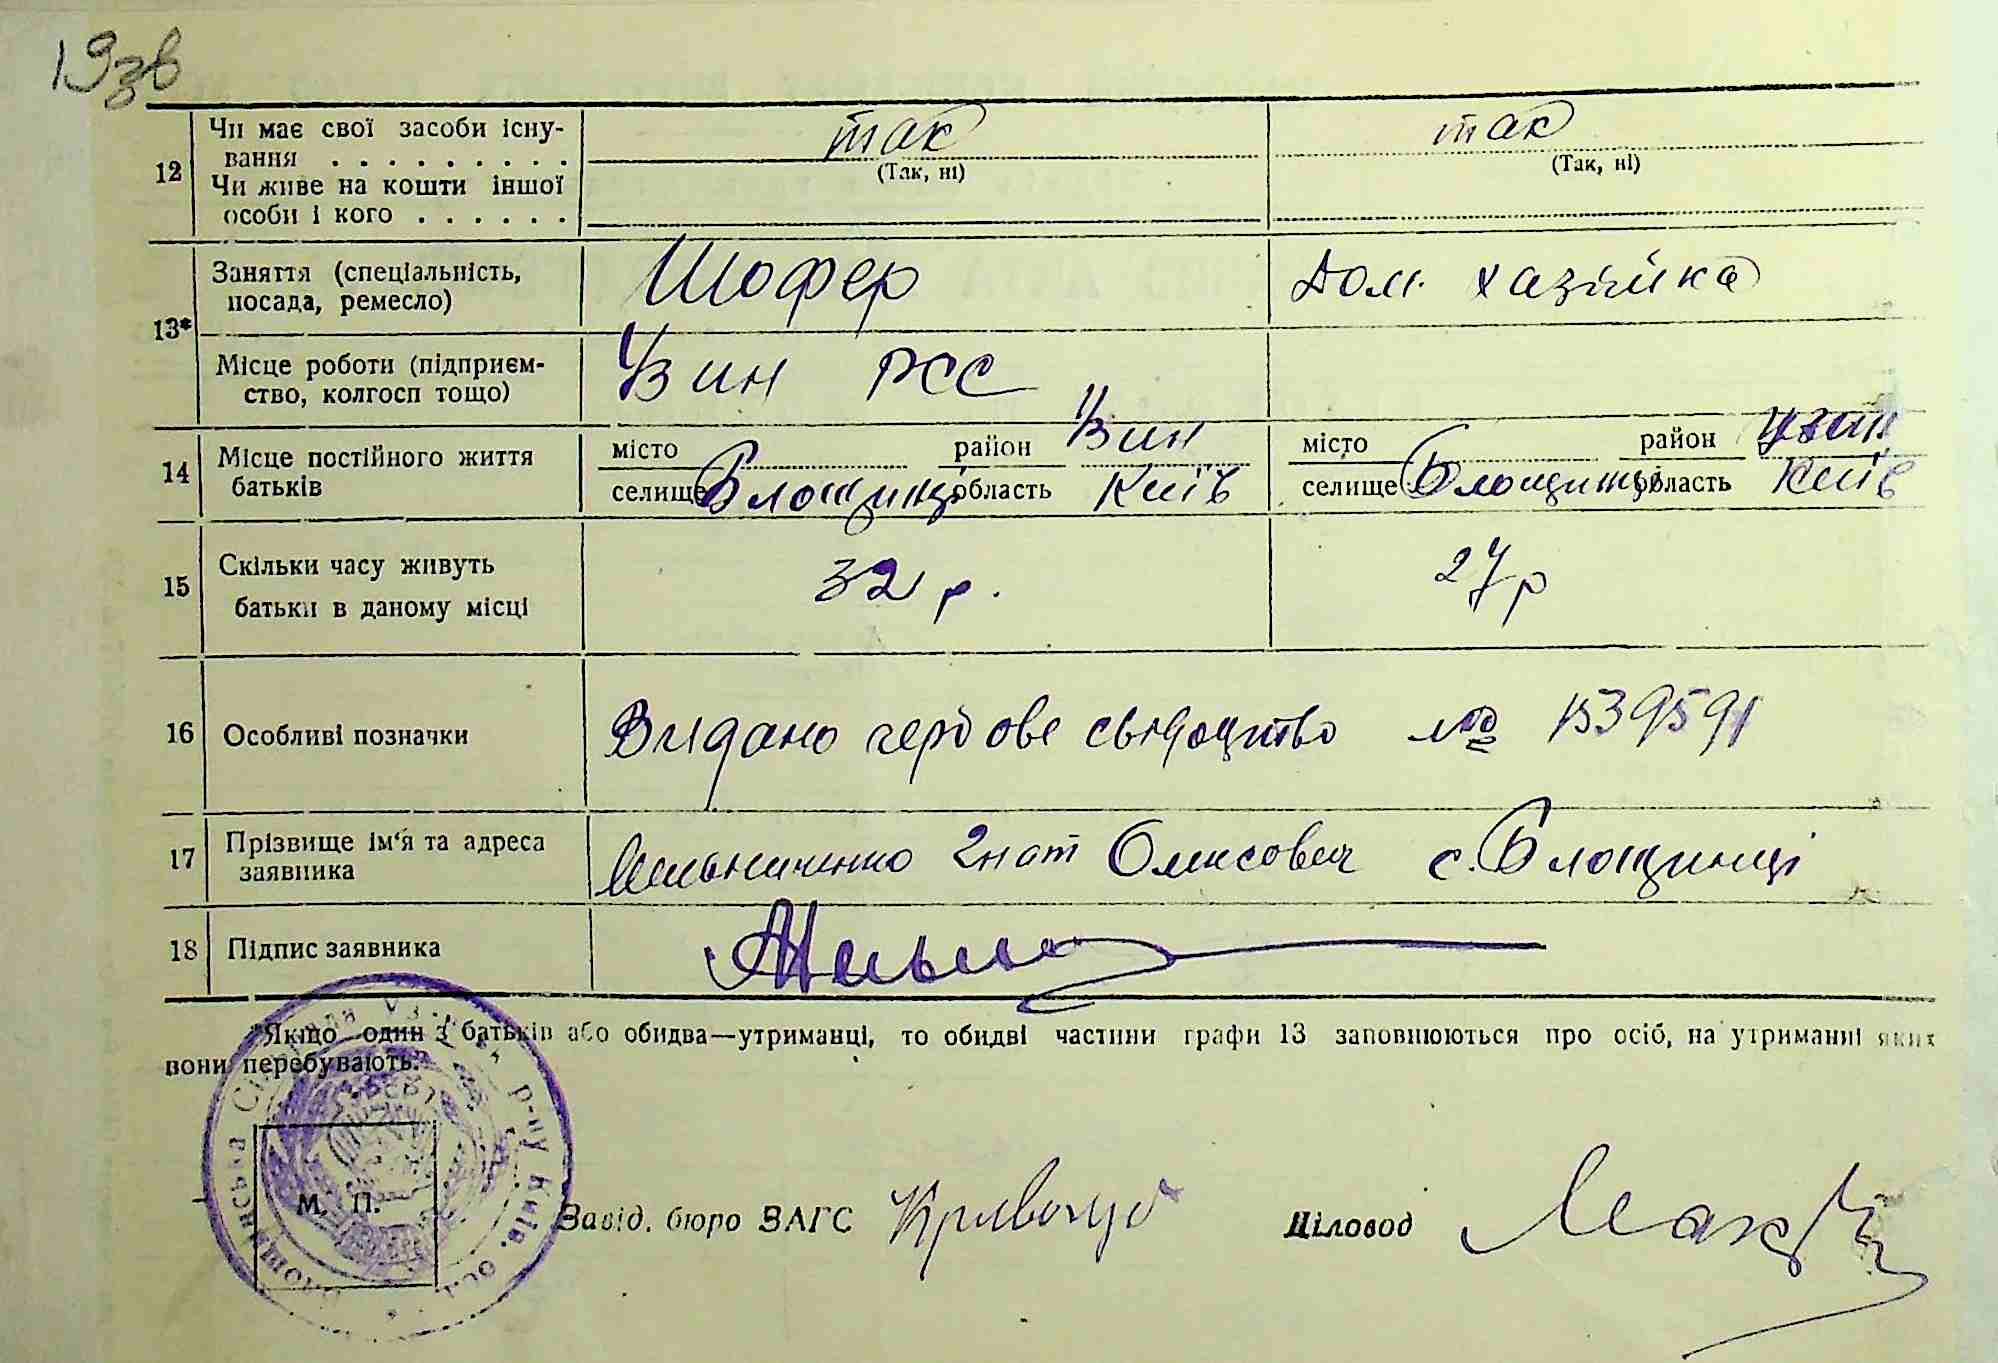 19зв
12 Чи має свої засоби існу-
вання . . . . . . . . . так (Так, ні) так (Так, ні)
Чи живе на кошти іншої
особи і кого . . . . . .
13* Заняття (спеціальність,
посада, ремесло) Шофер Дом. хазяйка
Місце роботи (підприєм-
ство, колгосп тощо) Узин РСС
14 Місце постійного життя
батьків
місто район Узин місто район Узин
селище Блощинці область Київ селище Блощинці область Київ
15 Скільки часу живуть
батьки в даному місці 32 р. 27 р
16 Особливі позначки Видано гербове свідоцтво № 1539591
17 Прізвище ім'я та адреса
заявника Мельниченко Гнат Оликсович с. Блощинці
18 Підпис заявника
*Якщо один з батьків або обидва—утриманці, то обидві частини графи 13 заповнюються про осіб, на утриманні яких
вони перебувають.
М. П.
Завід. бюро ЗАГС Діловод
р-ну Київ. обл.